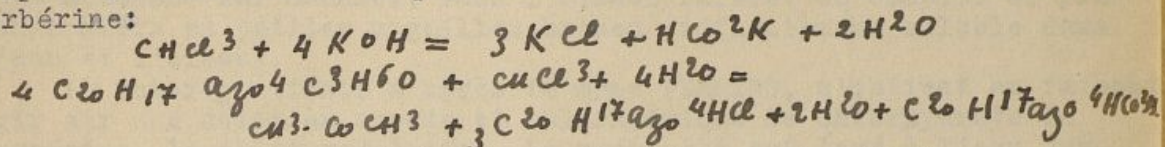 rbérine:
CHCl3 + 4 KOH = 3 KCl + HCO2K + 2H2O
4 C20H17 azo4 C3H6O + CHCl3 + 4H2O =
CH3-COCH3 + 3C20 H17azo4HCl + 2H2O + C20 H17azo4